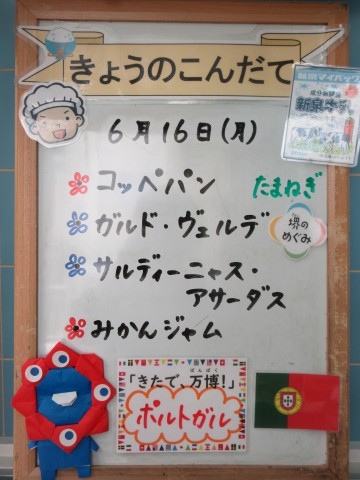 きょうのこんだて
新泉マイパック
成分無調整
新泉牛乳
6月16日(月)
コッペパン
たまねぎ
ガルド・ヴェルデ
堺の
めぐみ
サルディーニャス・
アサーダス
みかんジャム
「きたで、万博!」
ばんぱく
ポルトガル